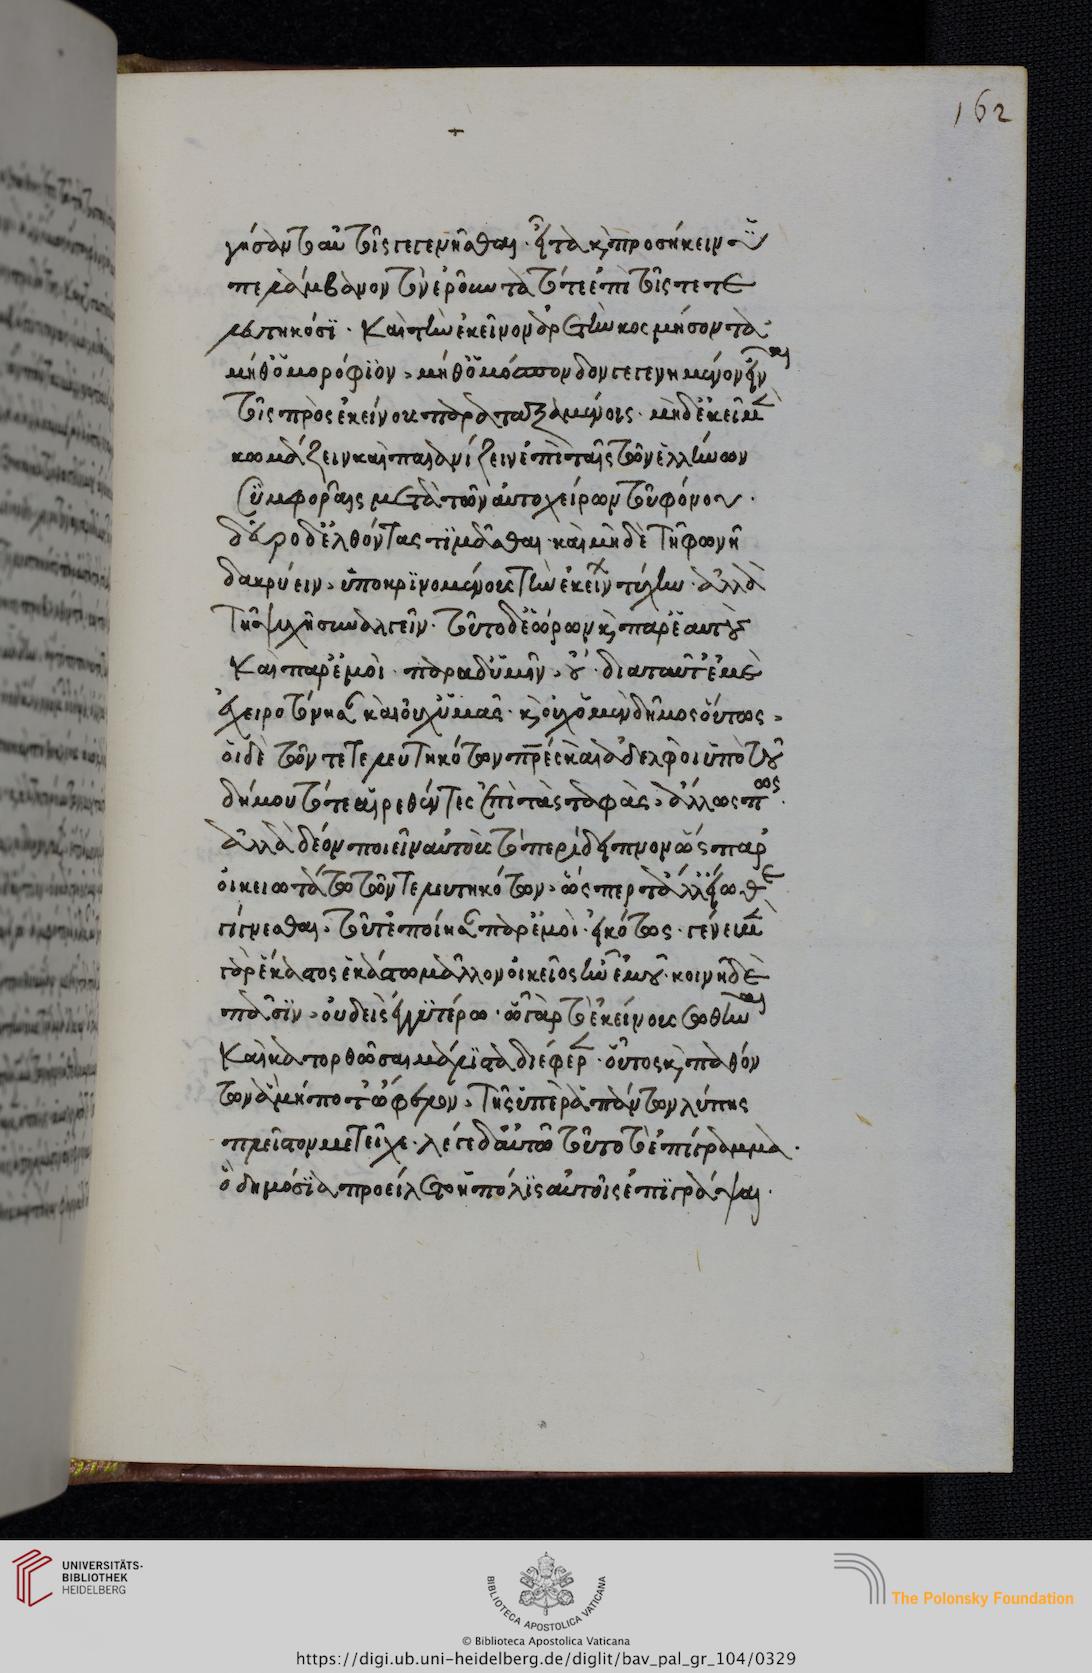 162
γήσαντ' αὐτοῖς γεγενῆσθαι. εἶτα καὶ προσήκειν ὑ
πελάμβανον τὸν ἐροῦντα τότε ἐπὶ τοῖς τετε
λευτηκόσι. καὶ τὴν ἐκείνων ἀρετὴν κοσμήσοντα
μήθ' ὁμορόφιον, μήθ' ὁμόσπονδον γεγενημένον εἶναι
τοῖς πρὸς ἐκείνους παραταξαμένοις. μηδ' ἐκεῖ μὲν
κωμάζειν καὶ παιανίζειν ἐπὶ ταῖς τῶν ἑλλήνων
συμφοραῖς μετὰ τῶν αὐτοχείρων τοῦ φόνου.
δεῦρο δ' ἐλθόντας τιμᾶσθαι. καὶ μηδὲ τῇ φωνῇ
δακρύειν, ὑποκρινομένους τὴν ἐκείνων τύχην. ἀλλὰ
τῇ ψυχῇ συναλγεῖν. τοῦτο δ' ἑώρων καὶ παρ' ἑαυτοῖς
καὶ παρ' ἐμοὶ. παρὰ δ' ὑμῖν, οὔ. διὰ ταῦτ' ἐμὲ
ἐχειροτόνησαν καὶ οὐχ ὑμᾶς. καὶ οὐχ ὁ μὲν δῆμος οὕτως,
οἱ δὲ τῶν τετελευτηκότων πρές καὶ ἀδελφοὶ ὑπὸ τοῦ
δήμου τότε αἱρεθέντες ἐπὶ τὰς ταφὰς, ἄλλως πως.
ἀλλὰ δέον ποιεῖν αὐτοὺς τὸ περίδειπνον ὡς παρ'
οἰκειοτάτῳ τῶν τελευτηκότων, ὥσπερ τἄλλ' εἴωθε
γίγνεσθαι, τοῦτ' ἐποίησαν παρ' ἐμοὶ. εἰκότως. γένει μὲν
γὰρ ἕκαστος ἑκάστῳ μᾶλλον οἰκεῖος ἦν ἐμοῦ. κοινῇ δὲ
πᾶσιν, οὐδεὶς ἐγγυτέρω. ᾧ γὰρ τὸ ἐκείνους σωθῆναι
καὶ κατορθῶσαι μάλιστα διέφερεν. οὗτος καὶ παθόν
των ἃ μήποτ' ὤφελον, τῆς ὑπὲρ ἁπάντων λύπης
πλεῖστον μετεῖχε. λέγε δ' αὐτῶ τοῦτο τὸ ἐπίγραμμα.
ὃ δημοσία προείλετο ἡ πόλις αὐτοῖς ἐπιγράψαι.
UNIVERSITÄTS-
BIBLIOTHEK
HEIDELBERG
BIBLIOTECA APOSTOLICA VATICANA
The Polonsky Foundation
© Biblioteca Apostolica Vaticana
https://digi.ub.uni-heidelberg.de/diglit/bav_pal_gr_104/0329